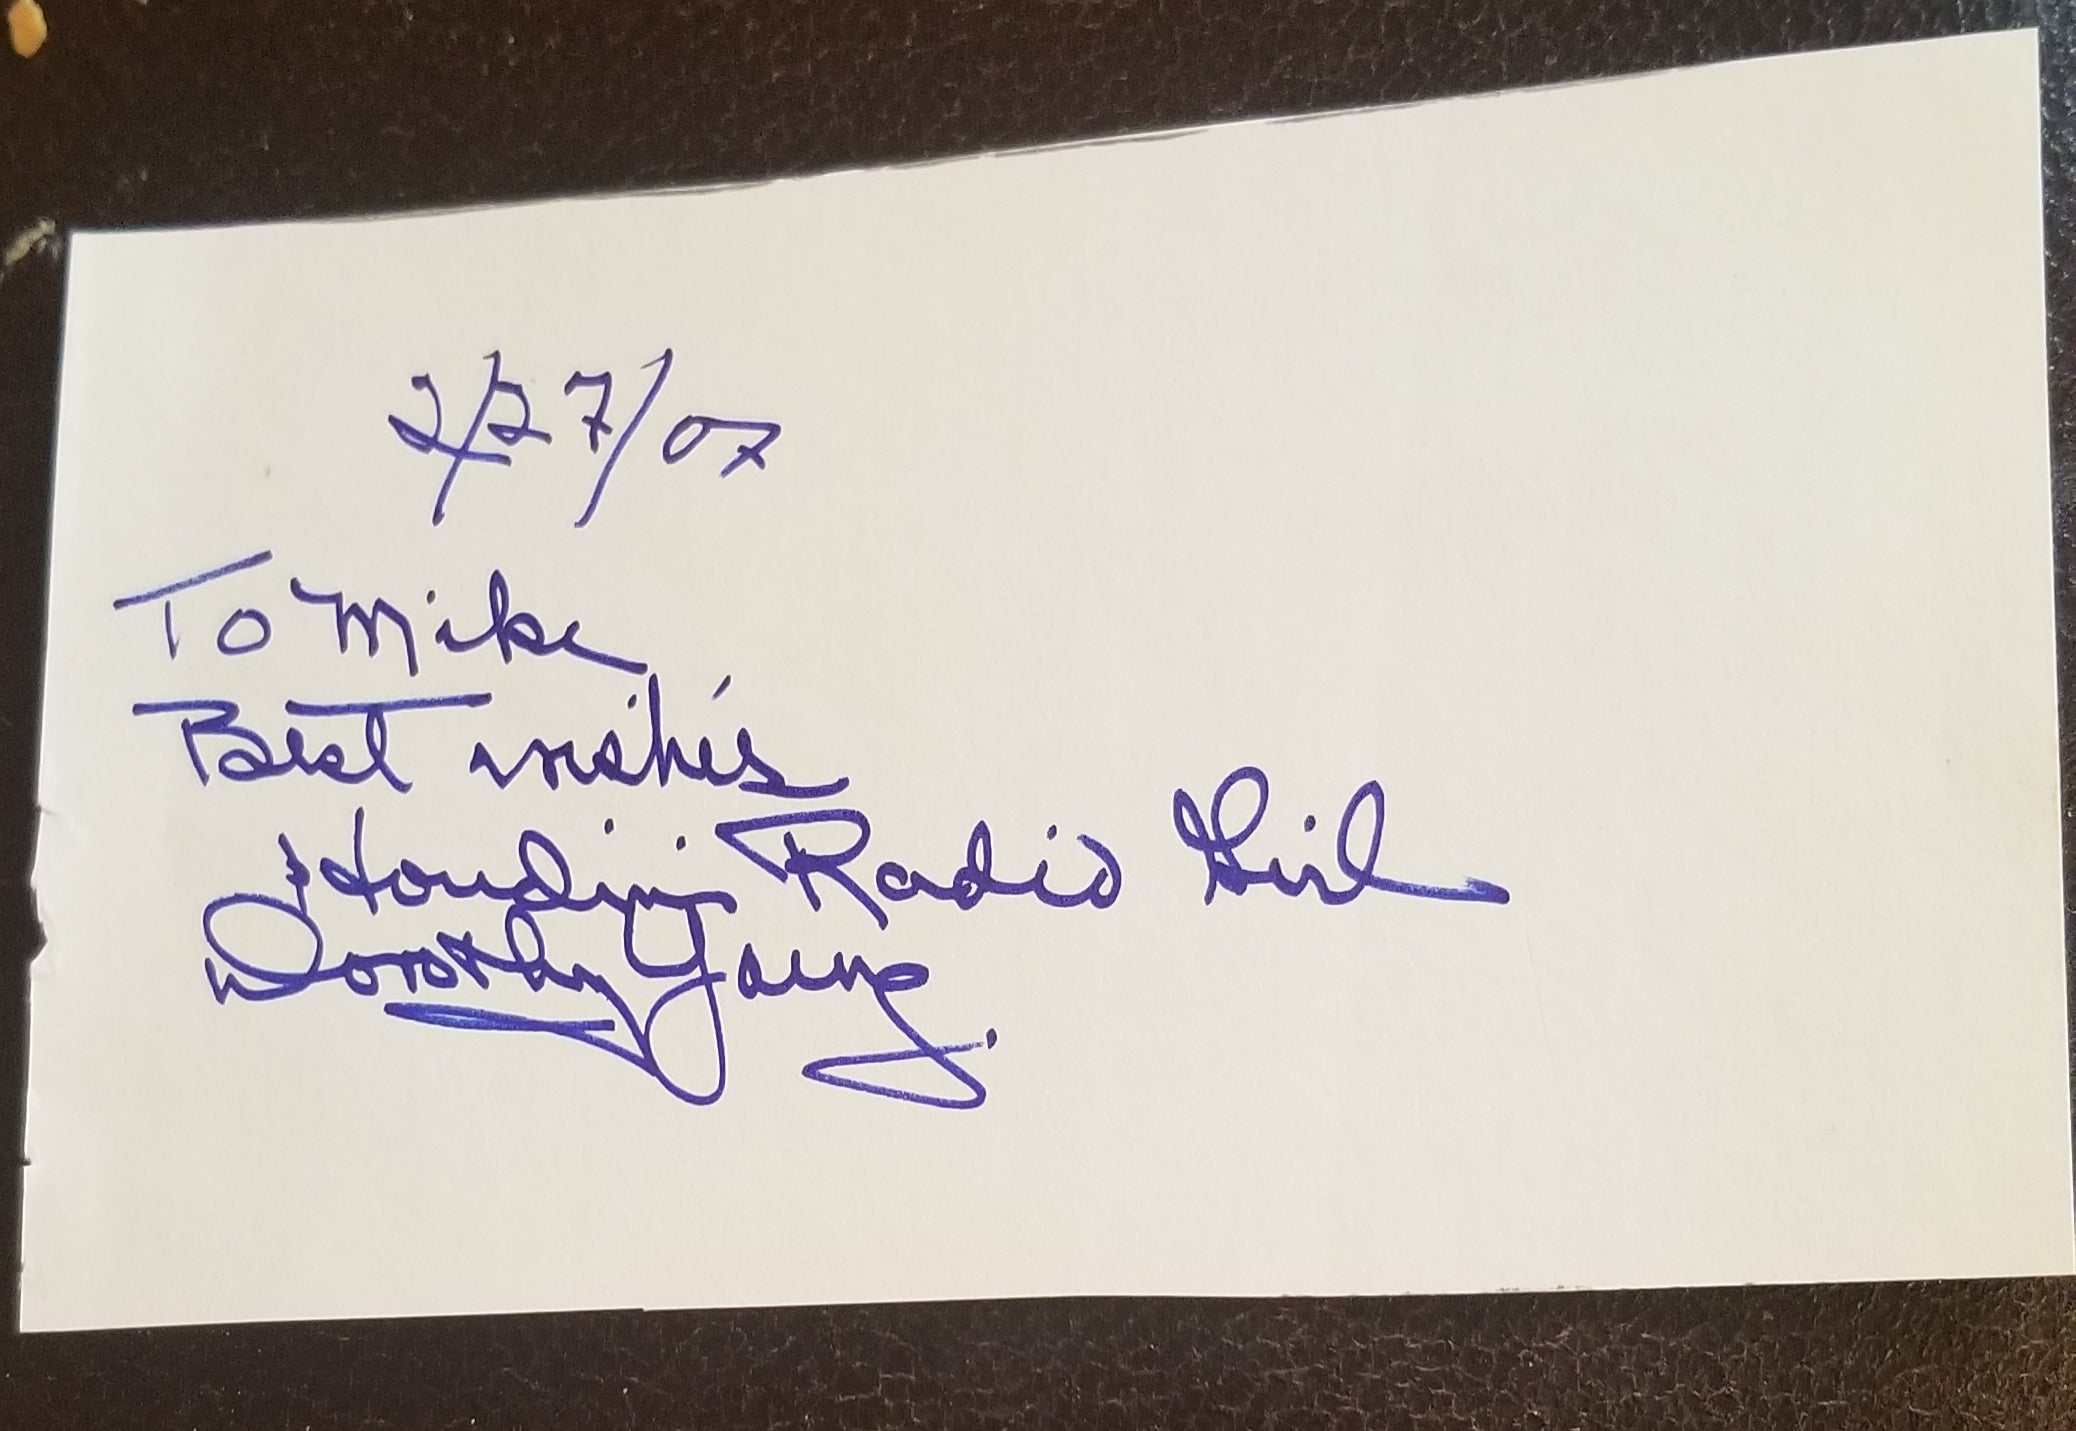 2/27/07
To Mike
Best wishes
Houdini Radio Girl
Dorothy Young